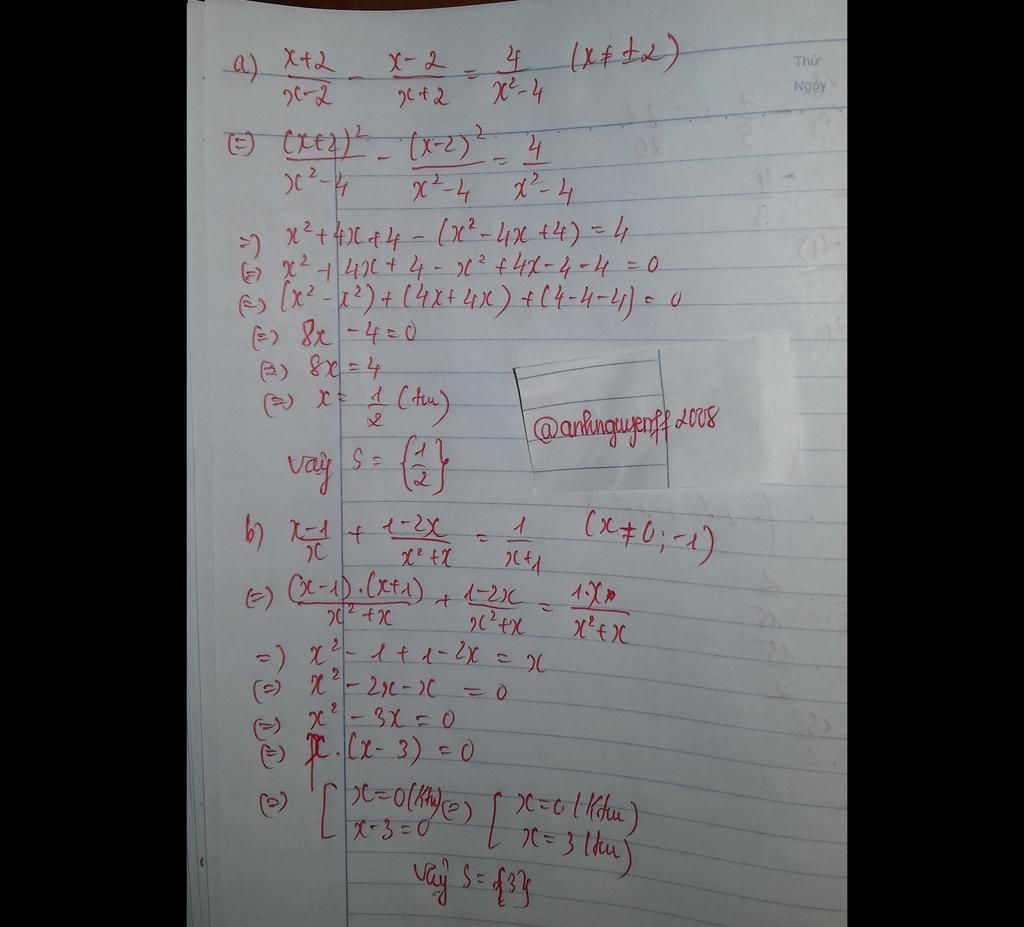 a) \frac{x+2}{x-2} - \frac{x-2}{x+2} = \frac{4}{x²-4} (x ≠ ±2)
Thứ
Ngày
(=) \frac{(x+2)²}{x²-4} - \frac{(x-2)²}{x²-4} = \frac{4}{x²-4}
=) x² + 4x + 4 - (x² - 4x + 4) = 4
(=) x² + 4x + 4 - x² + 4x - 4 - 4 = 0
(=) (x² - x²) + (4x + 4x) + (4 - 4 - 4) = 0
(=) 8x - 4 = 0
(=) 8x = 4
(=) x = \frac{1}{2} (tm)
@anhnguyenff2008
vậy S = {\frac{1}{2}}
b) \frac{x-1}{x} + \frac{1-2x}{x²+x} = \frac{1}{x+1} (x ≠ 0; -1)
(=) \frac{(x-1).(x+1)}{x²+x} + \frac{1-2x}{x²+x} = \frac{1.x}{x²+x}
=) x² - 1 + 1 - 2x = x
(=) x² - 2x - x = 0
(=) x² - 3x = 0
(=) x . (x - 3) = 0
(=) [ x = 0 (Ktm) (=) [ x = 0 (Ktm)
x - 3 = 0 x = 3 (tm)
Vậy S = {3}